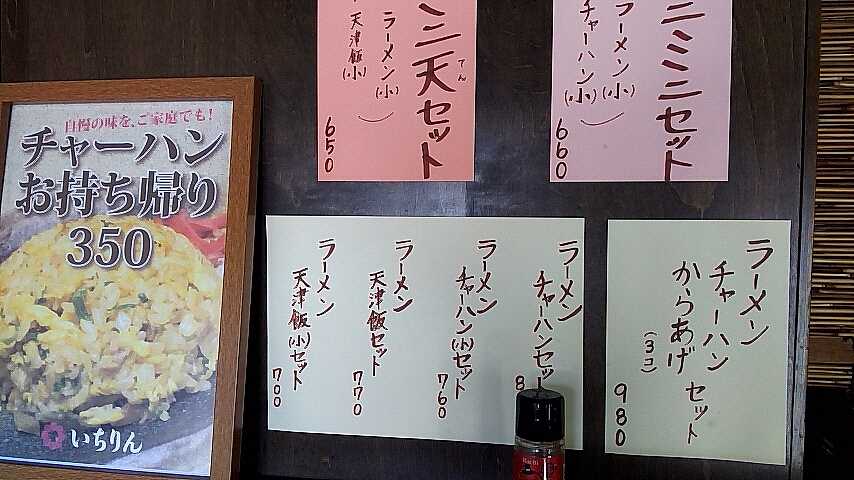 自慢の味を、ご家庭でも!
チャーハン
お持ち帰り
350
いちりん
ミニミニセット
ラーメン(小)
チャーハン(小)
660
ミニ天セット
てん
ラーメン(小)
天津飯(小)
650
ラーメン
チャーハン
からあげ セット
(3コ)
980
ラーメン
チャーハンセット
8
ラーメン
チャーハン(小)セット
760
ラーメン
天津飯セット
770
ラーメン
天津飯(小)セット
700